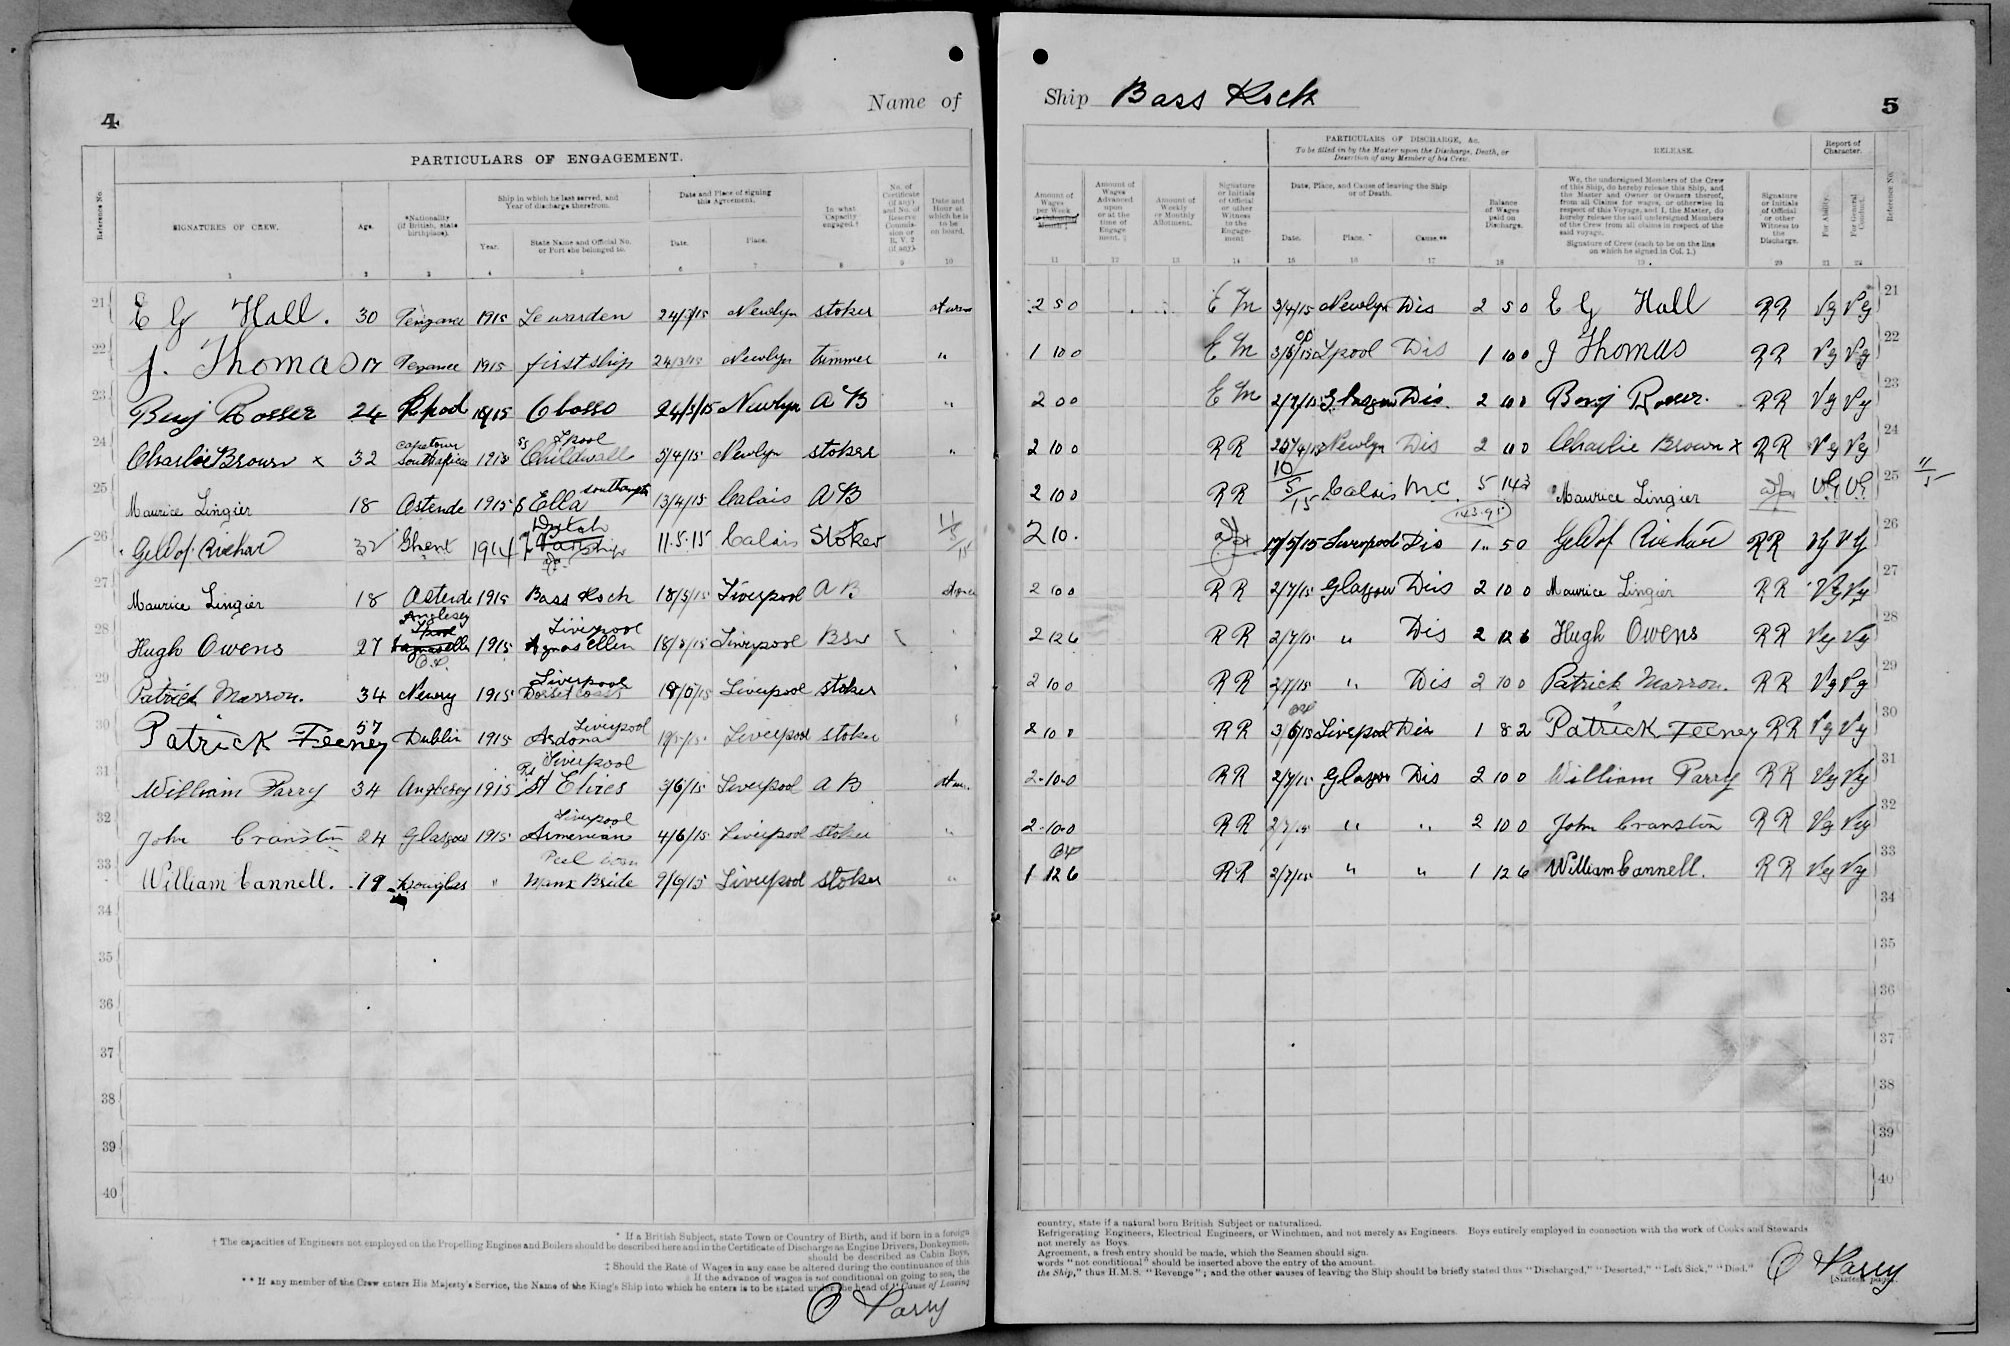 4
Name of
PARTICULARS OF ENGAGEMENT.
Reference No.
SIGNATURES OF CREW.
Age.
*Nationality
(if British, state
birthplace).
Ship in which he last served, and
Year of discharge therefrom.
Year.
State Name and Official No.
or Port she belonged to.
Date and Place of signing
this Agreement.
Date.
Place.
In what
Capacity
engaged.†
No. of
Certificate
(if any)
and No. of
Reserve
Commis-
sion or
R.V. 2
(if any).
Date and
Hour at
which he is
to be
on board.
1 2 3 4 5 6 7 8 9 10
21 E G Hall. 30 Penzance 1915 Lewarden 24/3/15 Newlyn stoker
22 J. Thomas 17 Penzance 1915 first ship 24/3/15 Newlyn trimmer "
23 Benj Rosser 24 Lpool 1915 24/3/15 Newlyn A B "
Lpool
24 Charlie Brown x 32 Capetown South Africa SS Childwall 5/4/15 Newlyn stoker "
Southampton
25 Maurice Lingier 18 Ostende 1915 Ella 13/4/15 Calais A B
Dutch
26 32 Ghent 1914 11.5.15 Calais Stoker 11/5/15
27 Maurice Lingier 18 Ostende 1915 Bass Rock 18/5/15 Liverpool A B
Anglesey Liverpool
28 Hugh Owens 27 1915 Agnes Ellen 18/5/15 Liverpool
Liverpool
29 Patrick Marron. 34 Newry 1915 Dorset Coast 18/5/15 Liverpool stoker
Liverpool
30 Patrick Feeney 57 Dublin 1915 Ardona Liverpool stoker
Liverpool
31 William Parry 34 Anglesey 1915 3/6/15 Liverpool A B
Liverpool
32 John Cranston 24 Glasgow 1915 Armenian 4/6/15 Liverpool stoker "
Peel
33 William Cannell. 19 Douglas " Manx Bride 9/6/15 Liverpool stoker "
34
35
36
37
38
39
40
* If a British Subject, state Town or Country of Birth, and if born in a foreign
† The capacities of Engineers not employed on the Propelling Engines and Boilers should be described here and in the Certificate of Discharge as Engine Drivers, Donkeymen,
should be described as Cabin Boys,
‡ Should the Rate of Wages in any case be altered during the continuance of this
If the advance of wages is not conditional on going to sea, the
** If any member of the Crew enters His Majesty's Service, the Name of the King's Ship into which he enters is to be stated under the head of "Cause of Leaving
O Parry
Ship Bass Rock
5
PARTICULARS OF DISCHARGE, &c.
To be filled in by the Master upon the Discharge, Death, or
Desertion of any Member of his Crew.
RELEASE.
Report of
Character.
Amount of
Wages
per Week
Amount of
Wages
Advanced
upon
or at the
time of
Engage
ment.
Amount of
Weekly
or Monthly
Allotment.
Signature
or Initials
of Official
or other
Witness
to the
Engage-
ment
Date, Place, and Cause of leaving the Ship
or of Death.
Date.
Place.
Cause.**
Balance
of Wages
paid on
Discharge.
We, the undersigned Members of the Crew
of this Ship, do hereby release this Ship, and
the Master and Owner or Owners thereof,
from all Claims for wages, or otherwise in
respect of this Voyage, and I, the Master, do
hereby release the said undersigned Members
of the Crew from all claims in respect of the
said voyage.
Signature of Crew (each to be on the line
on which he signed in Col. 1.)
Signature
or Initials
of Official
or other
Witness to
the
Discharge.
For Ability.
For General
Conduct.
Reference No.
11 12 13 14 15 16 17 18 19 20 21 22
2 5 0 E M 3/4/15 Newlyn Dis 2 5 0 E G Hall RR Vg Vg 21
1 10 0 E M 3/6/15 Lpool Dis 1 10 0 J Thomas RR Vg Vg 22
2 0 0 E M 2/7/15 Glasgow Dis. 2 10 0 Benj Rosser. RR Vg Vg 23
2 10 0 RR Newlyn Dis Charlie Brown x RR Vg Vg 24
2 10 0 RR 10/5/15 Calais M.C. 5 14 3 Maurice Lingier VG VG 25 11/5
143.95
2 10. 17/5/15 Liverpool Dis 1 " 5 0 RR Vg Vg 26
2 10 0 RR 2/7/15 Glasgow Dis 2 10 0 Maurice Lingier RR Vg Vg 27
2 12 6 RR 2/7/15 " Dis 2 12 6 Hugh Owens RR Vg Vg 28
2 10 0 RR 2/7/15 " Dis 2 10 0 Patrick Marron. RR Vg Vg 29
2 10 0 RR 3/6/15 Liverpool Dis 1 8 2 Patrick Feeney RR Vg Vg 30
2-10-0 RR 2/7/15 Glasgow Dis 2 10 0 William Parry RR Vg Vg 31
2-10-0 RR 2/7/15 " " 2 10 0 John Cranston RR Vg Vg 32
1 12 6 RR 2/7/15 " " 1 12 6 William Cannell. RR Vg Vg 33
34
35
36
37
38
39
40
country, state if a natural born British Subject or naturalized.
Refrigerating Engineers, Electrical Engineers, or Winchmen, and not merely as Engineers. Boys entirely employed in connection with the work of Cooks and Stewards
not merely as Boys.
Agreement, a fresh entry should be made, which the Seamen should sign.
words "not conditional" should be inserted above the entry of the amount.
the Ship," thus H.M.S. "Revenge"; and the other causes of leaving the Ship should be briefly stated thus "Discharged," "Deserted," "Left Sick," "Died."
O Parry